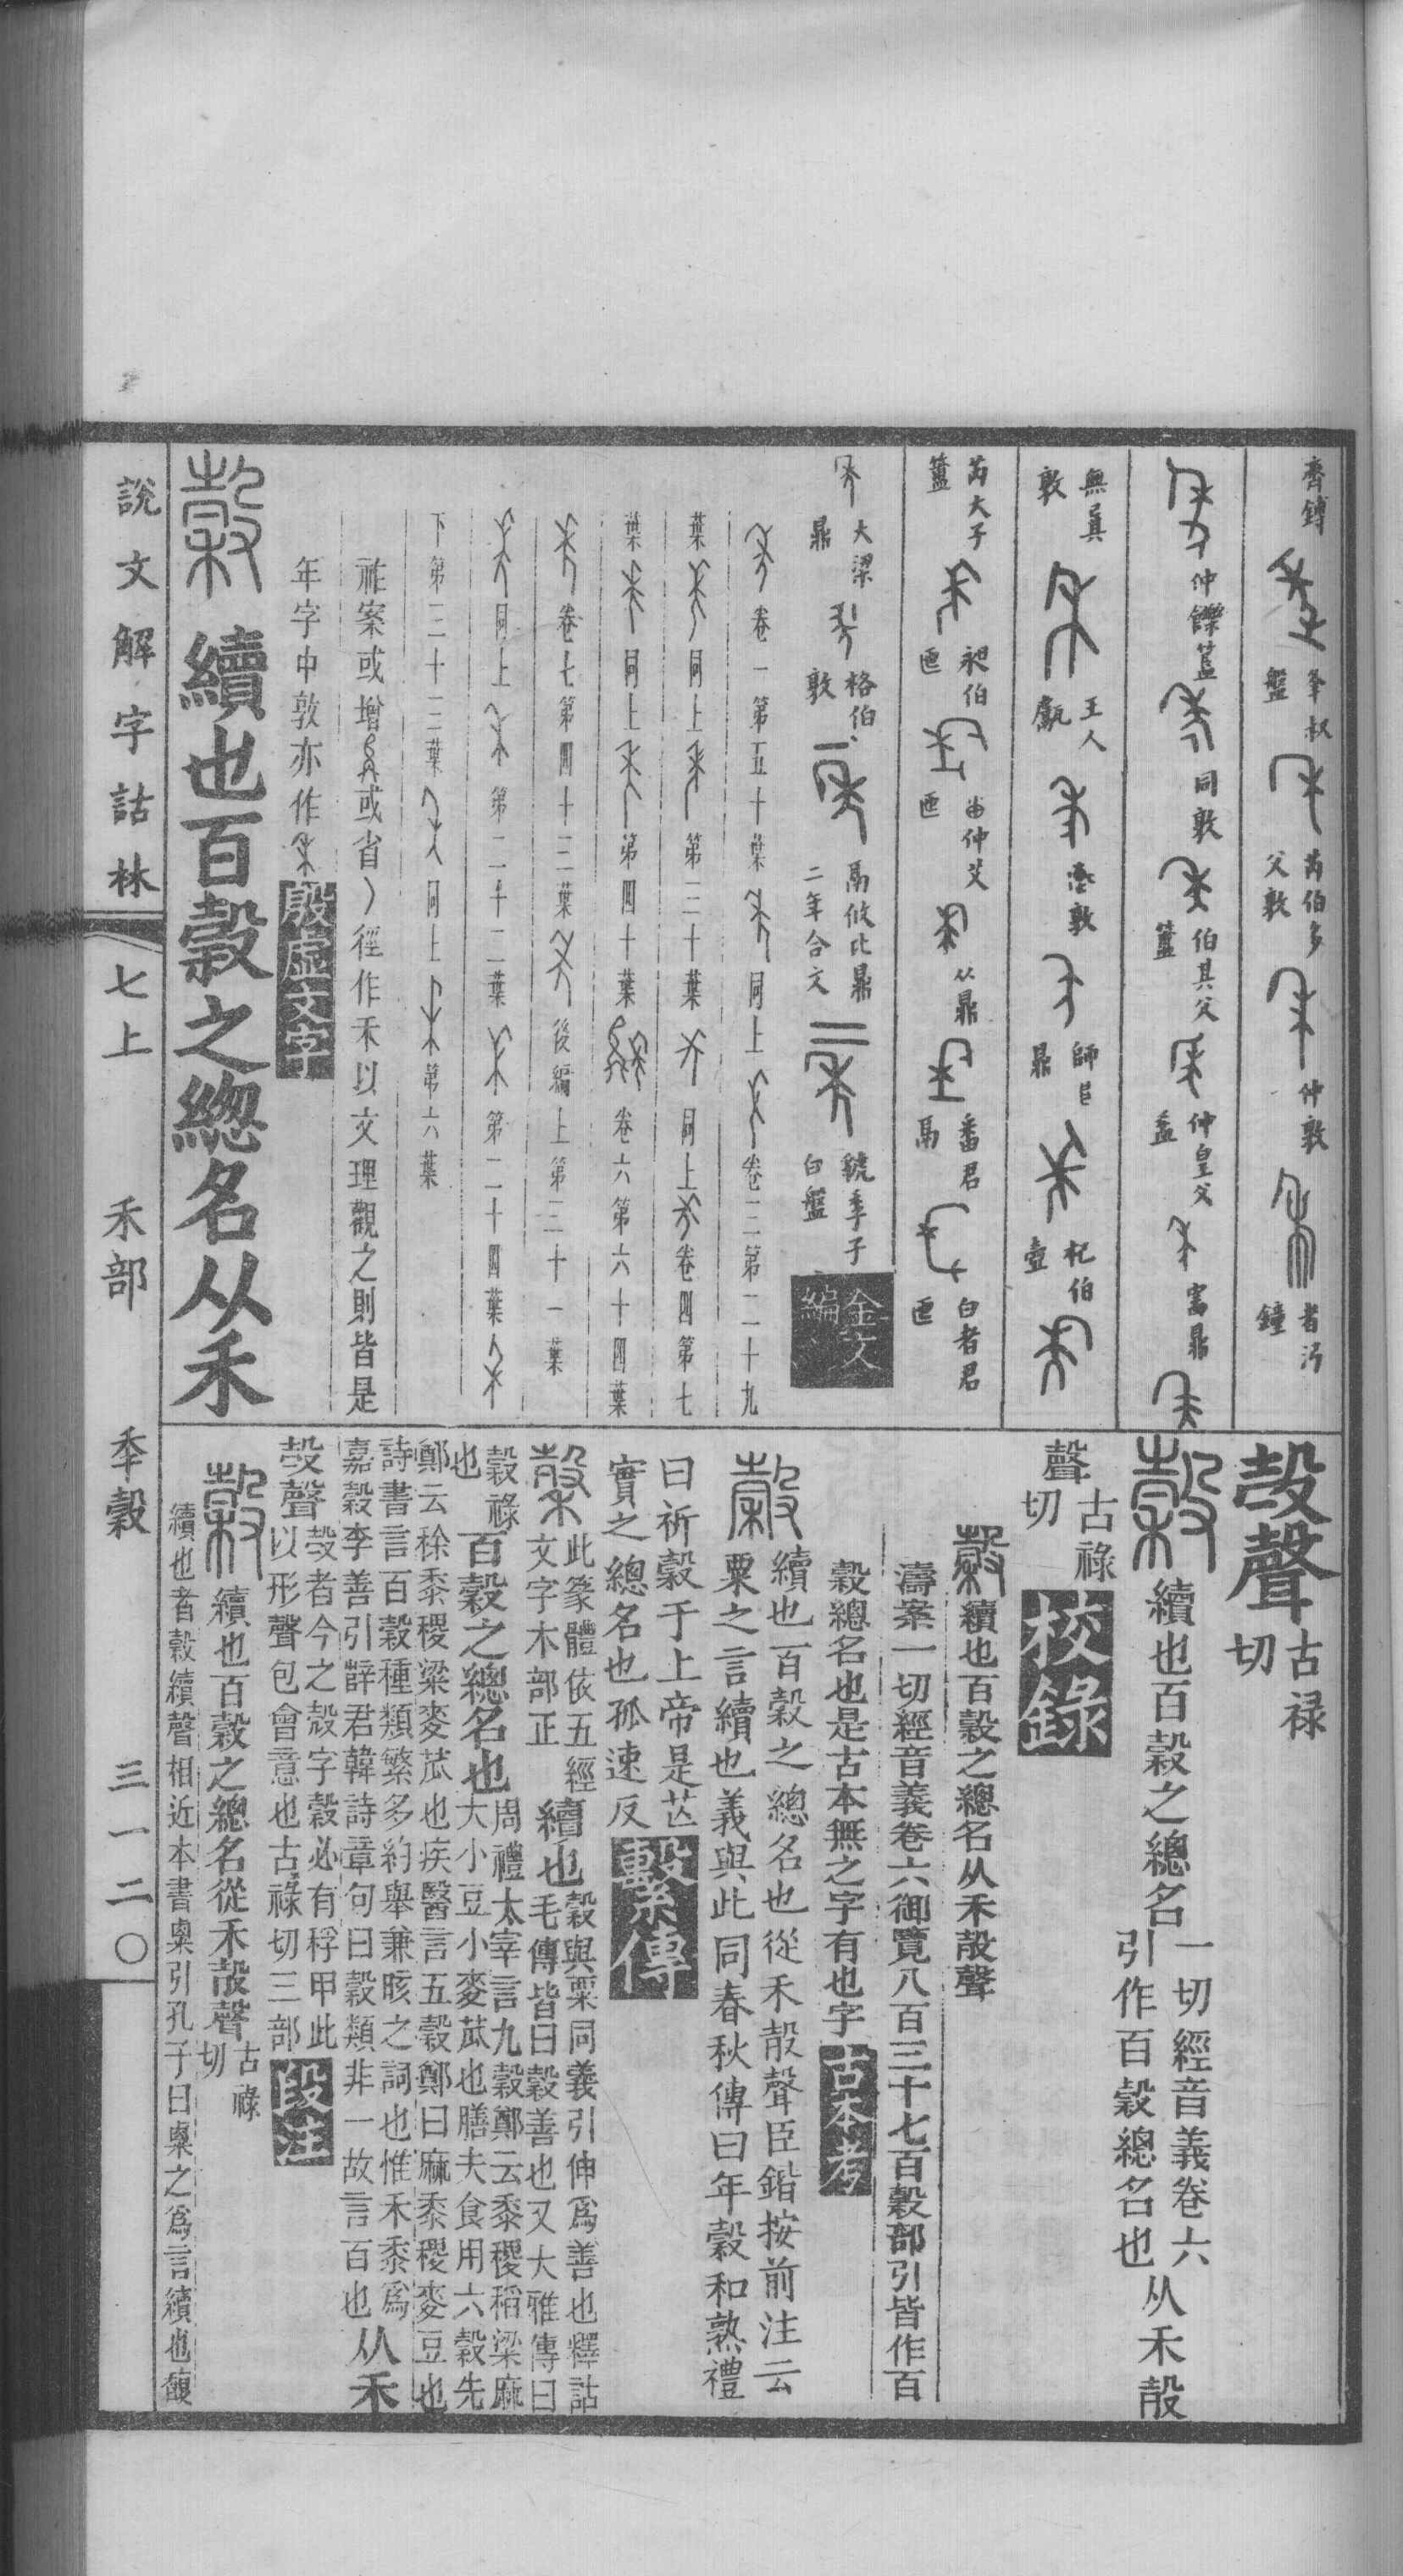 齊鎛
夆叔盤
芮伯多父敦
仲敦
者沪鐘
仲鑠簋
同敦
伯其父簠
仲皇父盉
富鼎
無㠱敦
王人甗
敦
師㠯鼎
杞伯壺
芮大子簠
昶伯匜
甶仲艾匜
从鼎
番君鬲
白者君匜
大梁鼎
格伯敦
鬲攸比鼎
二年合文
虢季子白盤
金文編
卷一第五十葉
同上
卷三第二十九
葉
同上
第三十葉
同上
卷四第七
葉
同上
第四十葉
卷六第六十四葉
卷七第四十三葉
後編上第三十一葉
同上
第二十二葉
第二十四葉
下第三十三葉
同上
第六葉
祚案或增
或省
徑作禾以文理觀之則皆是
年字中敦亦作
殷虛文字
續也百穀之總名从禾
㱿聲古禄切
續也百穀之總名一切經音義卷六引作百穀總名也从禾㱿
聲古祿切校錄
續也百穀之總名从禾㱿聲
濤案一切經音義卷六御覽八百三十七百穀部引皆作百
穀總名也是古本無之字有也字古本考
續也百穀之總名也從禾㱿聲臣鍇按前注云
粟之言續也義與此同春秋傳曰年穀和熟禮
曰祈穀于上帝是也
實之總名也孤速反繫傳
此篆體依五經文字木部正
續也穀與粟同義引伸爲善也釋詁毛傳皆曰穀善也又大雅傳曰
穀祿也
百穀之總名也周禮太宰言九穀鄭云黍稷稻粱麻大小豆小麥苽也膳夫食用六穀先
鄭云稌黍稷粱麥苽也疾醫言五穀鄭曰麻黍稷麥豆也
詩書言百穀種類繁多約舉兼晐之詞也惟禾黍爲
嘉穀李善引薛君韓詩章句曰穀類非一故言百也从禾
㱿聲㱿者今之殼字穀必有稃甲此以形聲包會意也古祿切三部段注
續也百穀之總名從禾㱿聲古祿切
續也者穀續聲相近本書㮚引孔子曰㮚之爲言續也馥
說文解字詁林
七上
禾部
秊穀
三一二〇